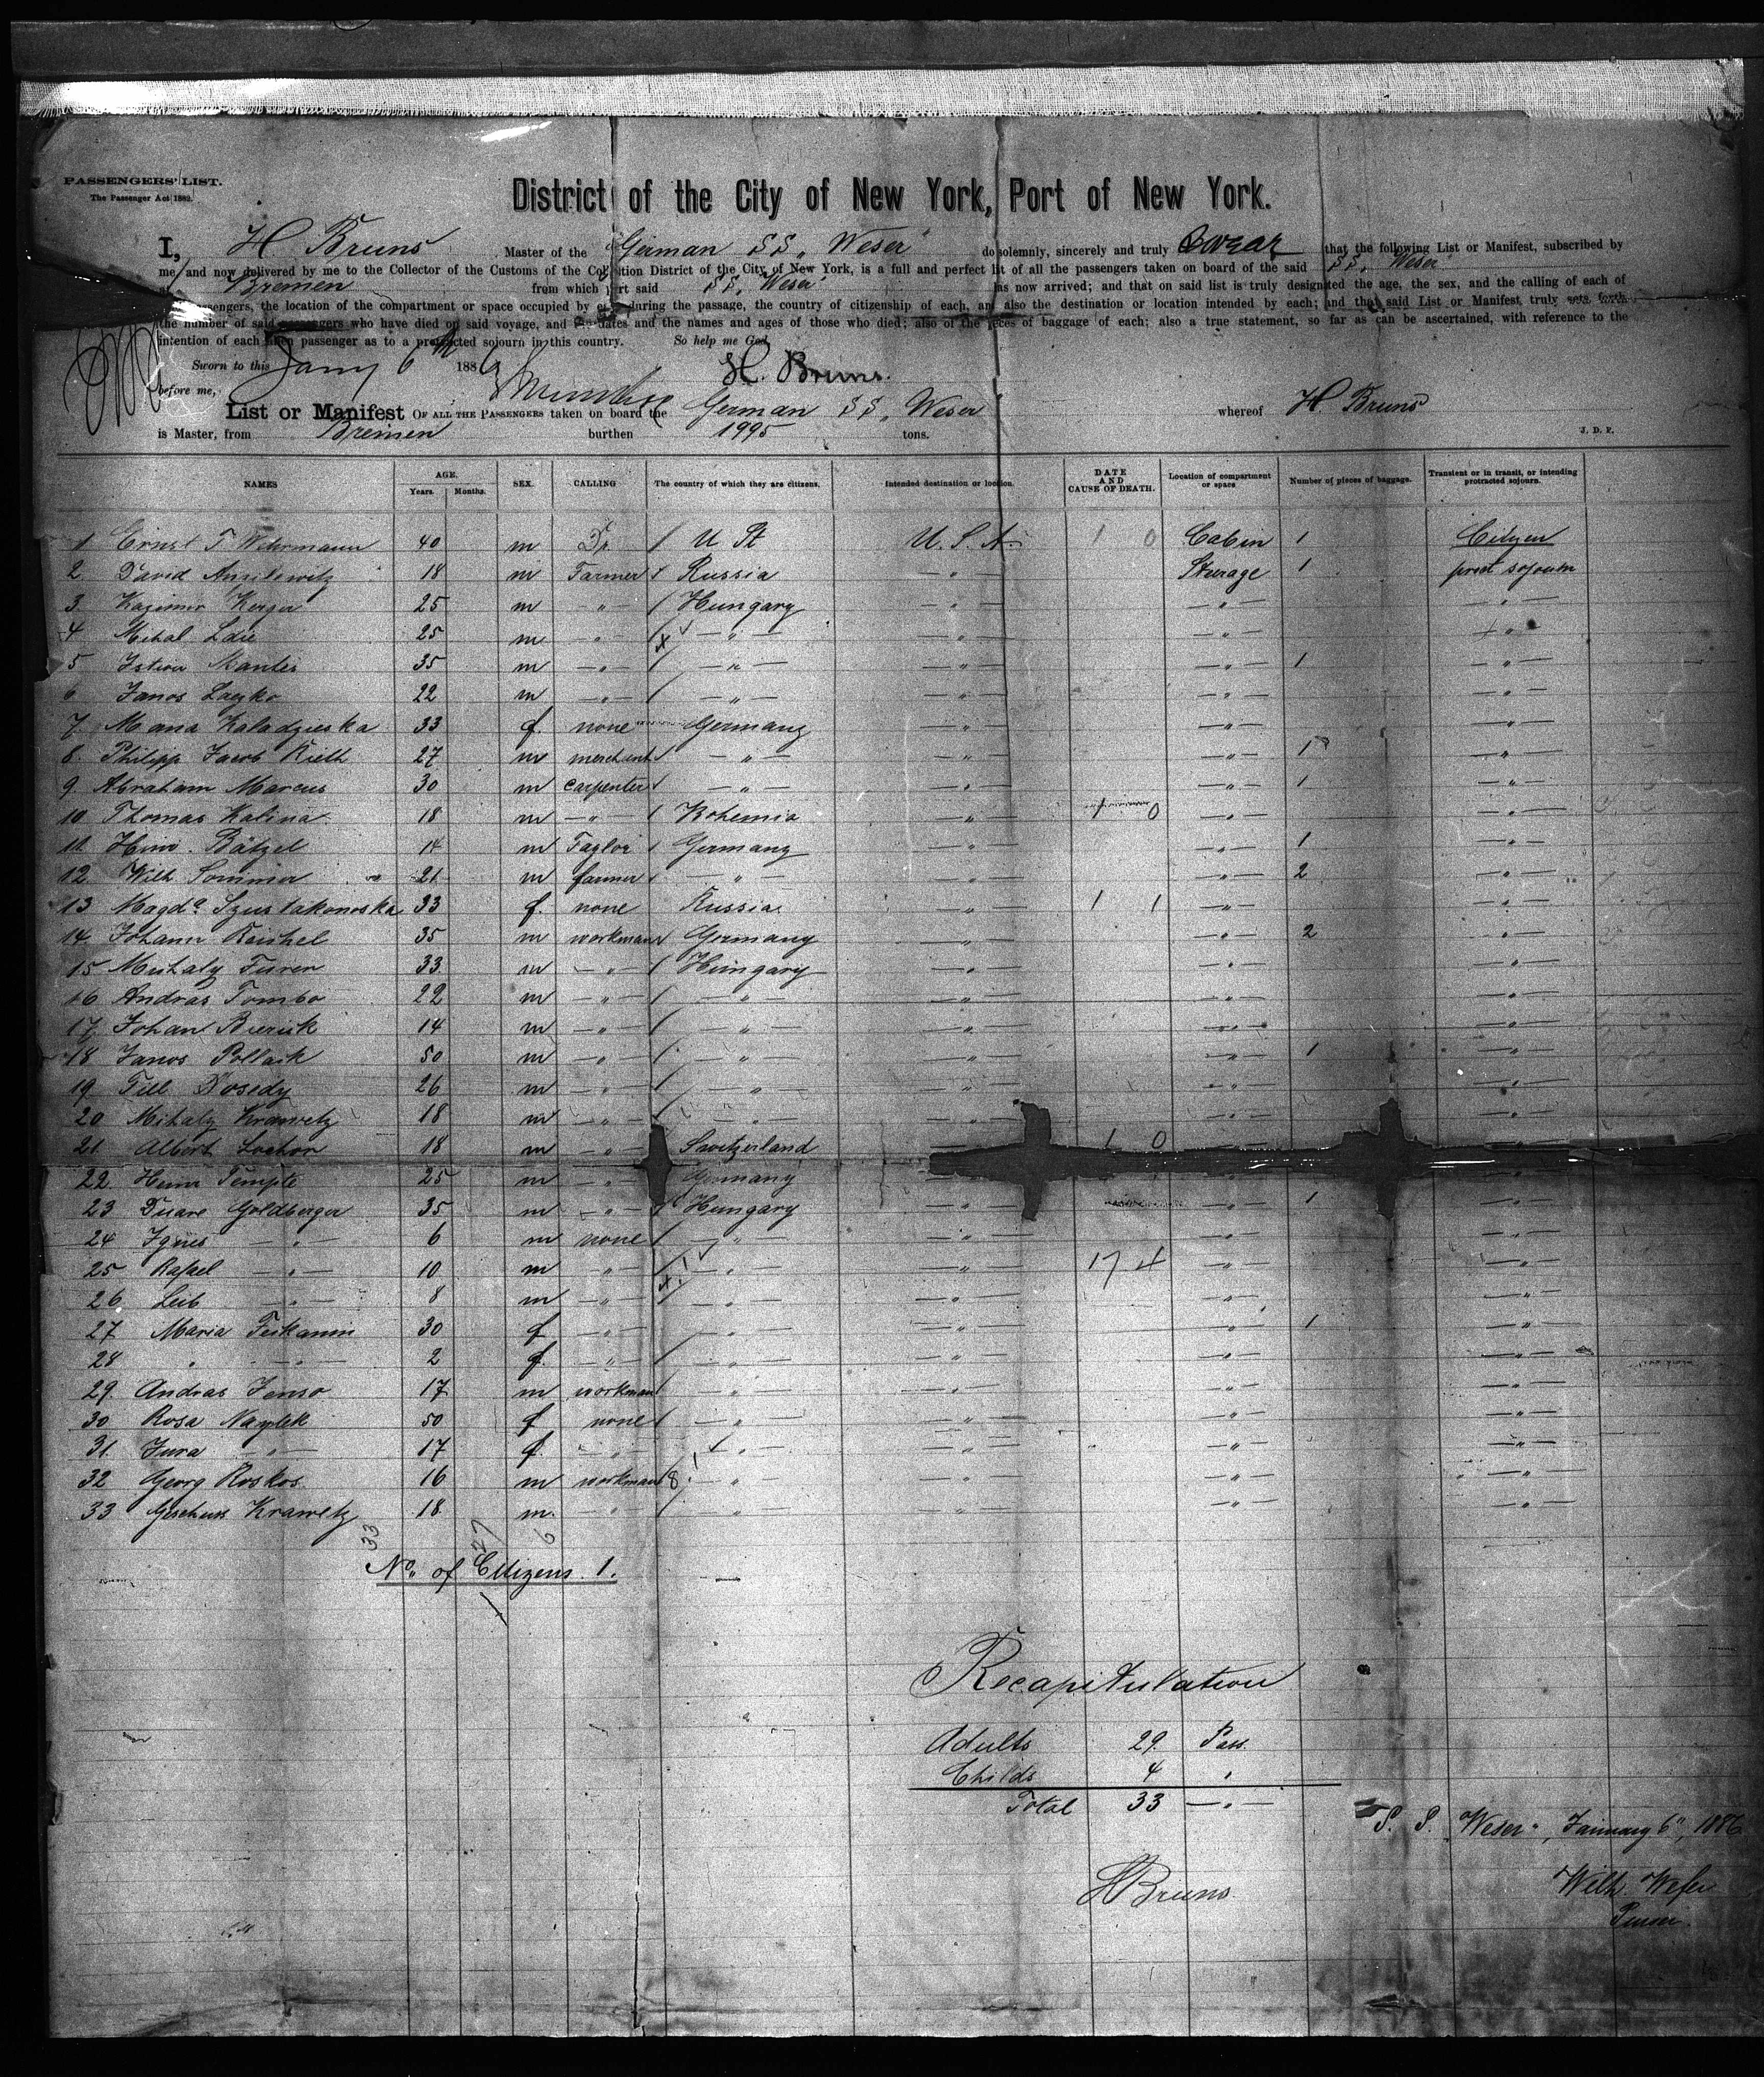 PASSENGERS' LIST.
The Passenger Act 1882.
District of the City of New York, Port of New York.
I, H. Bruns Master of the German SS. „Weser" do solemnly, sincerely and truly Swear that the following List or Manifest, subscribed by
me, and now delivered by me to the Collector of the Customs of the Collection District of the City of New York, is a full and perfect list of all the passengers taken on board of the said SS. „Weser"
at Bremen from which port said SS. „Weser" has now arrived; and that on said list is truly designated the age, the sex, and the calling of each of
passengers, the location of the compartment or space occupied by during the passage, the country of citizenship of each, and also the destination or location intended by each; and that said List or Manifest, truly sets forth
the number of said passengers who have died on said voyage, and dates and the names and ages of those who died; also of the pieces of baggage of each; also a true statement, so far as can be ascertained, with reference to the
intention of each passenger as to a protracted sojourn in this country. So help me God.
Sworn to this Jany 6th 1886 H. Bruns.
before me,
List or Manifest OF ALL THE PASSENGERS taken on board the German SS. „Weser" whereof H. Bruns
is Master, from Bremen burthen 1995 tons. J. D. P.
NAMES AGE. Years. Months. SEX. CALLING The country of which they are citizens. Intended destination or location. DATE AND CAUSE OF DEATH. Location of compartment or space Number of pieces of baggage. Transient or in transit, or intending protracted sojourn.
1 Ernst F Wehrmann 40 m Dr. / U St U. S. A. 1 0 Cabin 1 Citizen
2. David 18 m Farmer Russia — " — Steerage 1 prot sojourn
3. Kazimir Kerger 25 m — " — / Hungary — " — — " — — " —
4. Mihal 25 m — " — x — " — — " — — " — — " —
5 Istvan 35 m — " — / — " — — " — — " — 1 — " —
6 Janos Laczko 22 m — " — / — " — — " — — " — — " —
7. Maria Kaladzieska 33 f. none Germany — " — — " — — " —
8. Philipp Jacob Kieth 27 m merchant — " — — " — — " — 1 — " —
9. Abraham Marcus 30 m carpenter — " — — " — — " — 1 — " —
10 Thomas Kalina 18 m — " — / Bohemia — " — 1 0 — " — — " —
11. Heinr. Bätzel 14 m Taylor / Germany — " — — " — 1 — " —
12. Wilh Sommer 21 m farmer — " — — " — — " — 2 — " —
13 Magda Szuslakonoska 33 f. none Russia — " — 1 1 — " — — " —
14. Johann Reishel 35 m workman Germany — " — — " — 2 — " —
15 Mihaly Furen 33 m — " — / Hungary — " — — " — — " —
16 Andras Tombo 22 m — " — / — " — — " — — " — — " —
17. Johan 14 m — " — / — " — — " — — " — — " —
18 Janos Pollack 50 m — " — / — " — — " — — " — 1 — " —
19 Dosedy 26 m — " — / — " — — " — — " — — " —
20 Mihaly Krawetz 18 m — " — / — " — — " — — " — — " —
21. Albert Locher 18 m — " — Switzerland 1 0
22. Heinr Temple 25 m — " — Germany — " — — " —
23 Goldberger 35 m — " — / Hungary — " — — " — 1 — " —
24 Ignes — " — 6 m none / — " — — " — — " — — " —
25 Rafael — " — 10 m — " — / — " — — " — 17 4 — " — — " —
26 Leib — " — 8 m — " — — " — — " — — " — — " —
27 Maria Feikanin 30 f — " — — " — — " — — " — 1 — " —
28 " — " — 2 f. — " — / — " — — " — — " — — " —
29. Andras Jenso 17 m workman — " — — " — — " — — " —
30 Rosa Naytek 50 f none / — " — — " — — " — — " —
31. Jura — " — 17 f — " — — " — — " — — " — — " —
32 Georg Roskos 16 m workman 8 — " — — " — — " — — " —
33 Krawetz 18. m. — " — / — " — — " — — " — — " —
33 27 6
No. of Citizens 1.
Recapitulation
Adults 29 Pass.
Childs 4 "
Total 33 — " —
S. S. „Weser", January 6", 1886
H Bruns
Wilh Wefer
Purser.